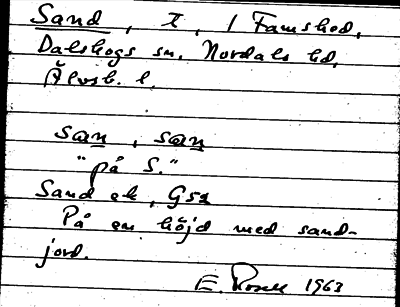 Sand, t, / Famshed,
Dalskogs sn, Nordals hd,
Älvsb. l.
san, sɑn
"på S."
Sand ek, G5a
På en höjd med sand-
jord.
E. Rosell 1963